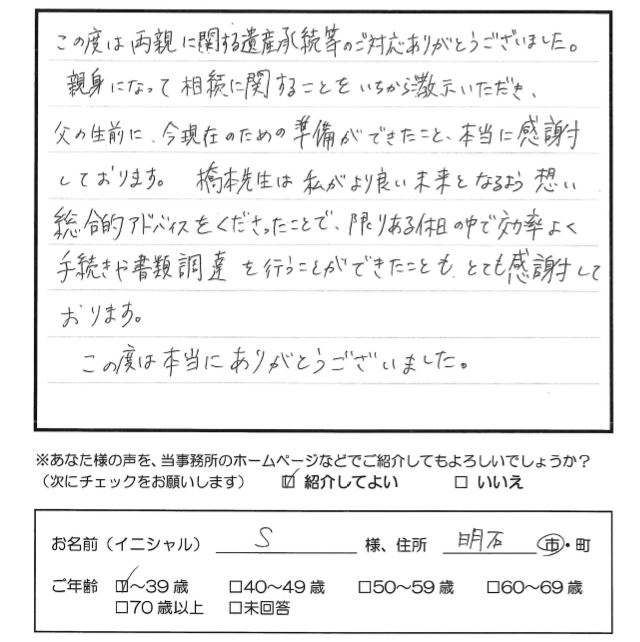 この度は両親に関する遺産承続等のご対応ありがとうございました。
親身になって相続に関することをいちから教示いただき、
父の生前に、今現在のための準備ができたこと、本当に感謝
しております。 橋本先生は私がより良い未来となるよう想い
総合的アドバイスをくださったことで、限りある休日の中で効率よく
手続きや書類調達を行うことができたことも、とても感謝して
おります。
この度は本当にありがとうございました。
※あなた様の声を、当事務所のホームページなどでご紹介してもよろしいでしょうか?
(次にチェックをお願いします) ☑ 紹介してよい □ いいえ
お名前(イニシャル) S 様、住所 明石 市・町
ご年齢 ☑~39歳 □40~49歳 □50~59歳 □60~69歳
□70歳以上 □未回答